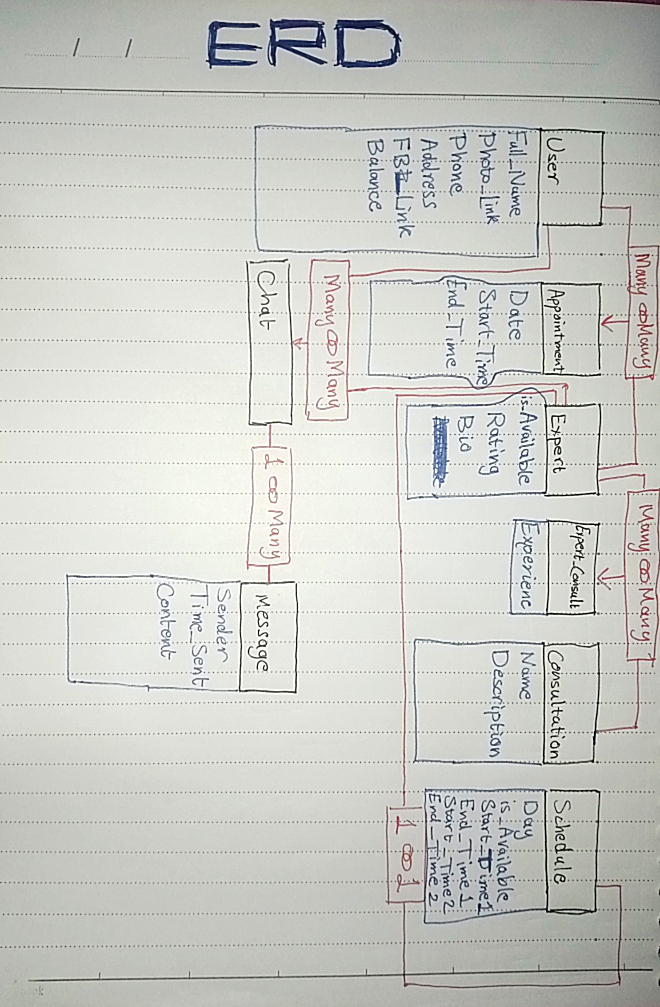 ERD
Many ∞ Many
Many ∞ Many
User
Full_Name
Photo_Link
Phone
Address
FB_Link
Balance
Appointment
Date
Start_Time
End_Time
Expert
is_Available
Rating
Bio
Expert_Consult
Experienc
Consultation
Name
Description
Schedule
Day
is_Available
Start_Time1
End_Time1
Start_Time2
End_Time2
1 ∞ 1
Many ∞ Many
Chat
1 ∞ Many
Message
Sender
Time_Sent
Content